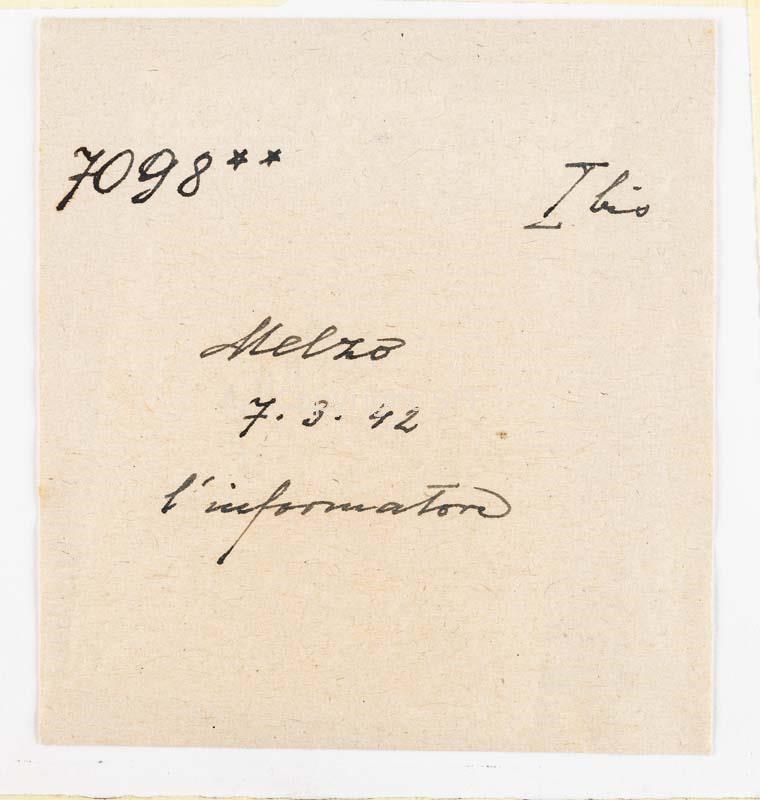 7098** I bis
Melzo
7. 3. 42
l'informatore